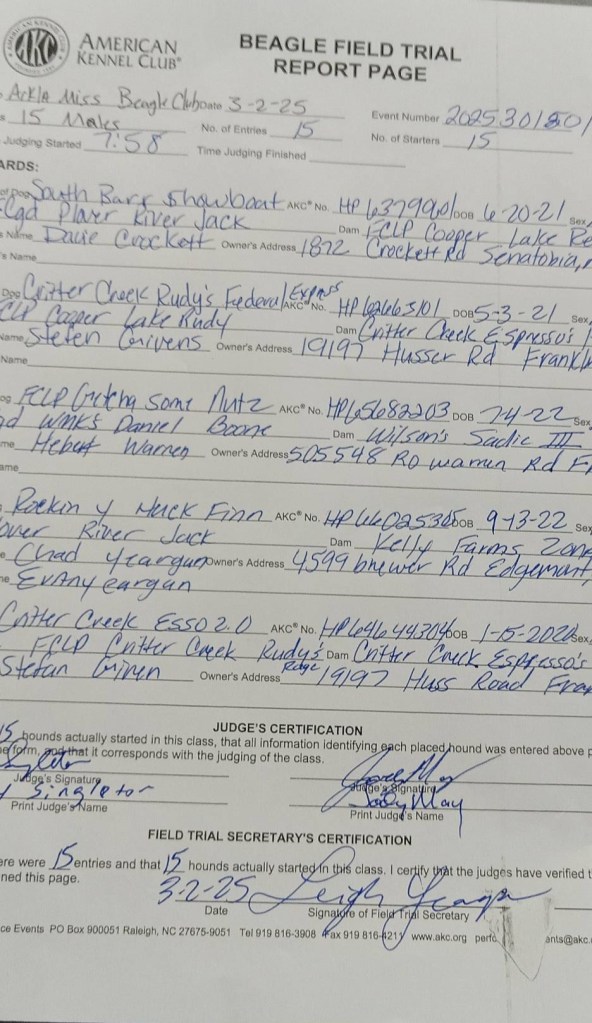 AMERICAN
KENNEL CLUB®
AKC
BEAGLE FIELD TRIAL
REPORT PAGE
Ark-La Miss Beagle Club Date 3-2-25
Event Number 2025301801
15 Males No. of Entries 15 No. of Starters 15
Judging Started 7:58 Time Judging Finished
ARDS:
Dog South Barr Showboat AKC® No. HP DOB 6-20-21 Sex
River Jack Dam FCLP Cooper Lake Re
Name Davie Crockett Owner's Address 1872 Crockett Rd Senatobia,
's Name
Dog Critter Creek Rudy's Federal Express AKC® No. HP DOB 5-3-21 Sex
CLP Cooper Lake Rudy Dam Critter Creek Espresso's
Name Stefen Givens Owner's Address 19197 Husser Rd Frankl
Name
og FCLP Gotcha Some Nutz AKC® No. HP65682203 DOB 7-4-22 Sex
gd WMK's Daniel Boone Dam Wilson's Sadie III
me Hebert Warren Owner's Address 505548 Ro warren Rd F
ame
Rockin Y Huck Finn AKC® No. HP66025305 DOB 9-13-22 Sex
over River Jack Dam Kelly Farms Zon
e Chad Yeargan Owner's Address 4599 brewer Rd Edgemont,
ne Evan Yeargan
Critter Creek Esso 2.0 AKC® No. HP64644304 DOB 1-15-2022 Sex
FCLP Critter Creek Rudy's Rage Dam Critter Creek Espresso's
Stefan Given Owner's Address 19197 Huss Road Fran
JUDGE'S CERTIFICATION
15 hounds actually started in this class, that all information identifying each placed hound was entered above p
e form, and that it corresponds with the judging of the class.
Judge's Signature Judge's Signature
Singletor Jody May
Print Judge's Name Print Judge's Name
FIELD TRIAL SECRETARY'S CERTIFICATION
ere were 15 entries and that 15 hounds actually started in this class. I certify that the judges have verified t
ned this page.
3-2-25 Leigh Yeargan
Date Signature of Field Trial Secretary
ce Events PO Box 900051 Raleigh, NC 27675-9051 Tel 919 816-3908 Fax 919 816-4211 www.akc.org perfo ants@akc.